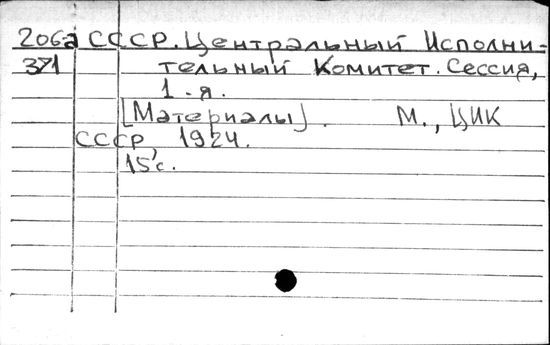 206а СССР. Центральный Исполни-
371 тельный Комитет. Сессия,
1-я.
[Материалы]. М., ЦИК
СССР, 1924.
15 с.